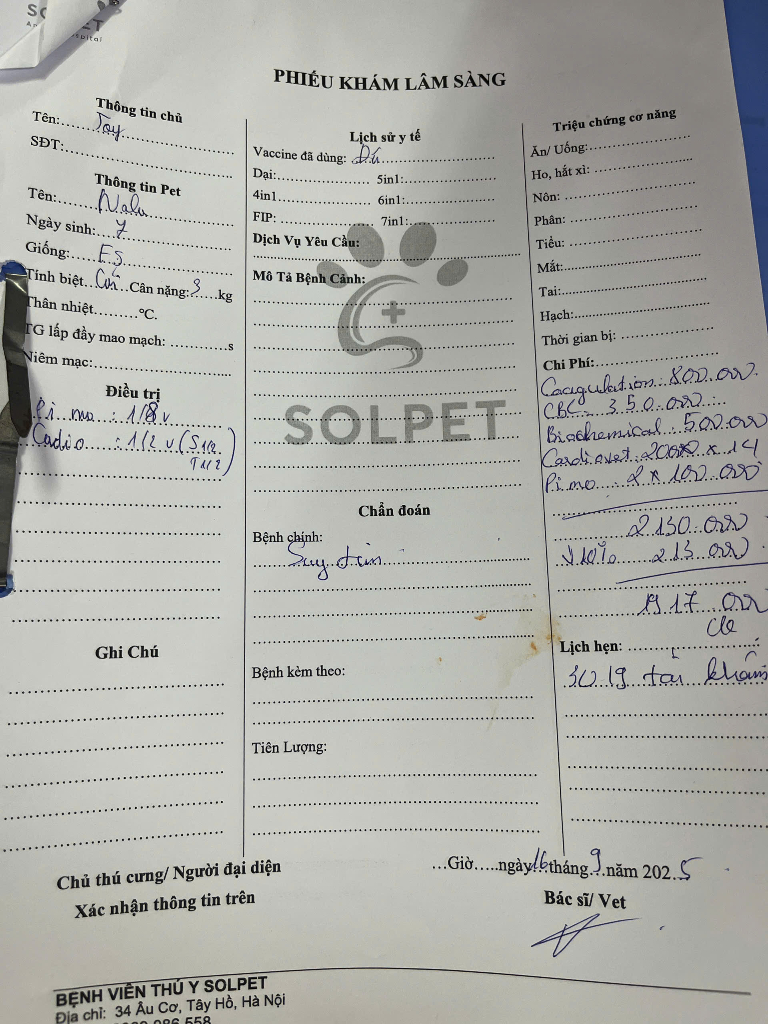 SOLPET
PHIẾU KHÁM LÂM SÀNG
Thông tin chủ
Tên: Tay
SĐT:
Thông tin Pet
Tên: Nalu
Ngày sinh: 7
Giống: ES
Tính biệt Cái Cân nặng: 3 kg
Thân nhiệt.........°C.
TG lấp đầy mao mạch: ............s
Niêm mạc:
Điều trị
Pimo : 1/8 v
Cadio : 1/2 v (S 1/2
T 1/2)
Ghi Chú
Lịch sử y tế
Vaccine đã dùng: Đủ
Dại: 5in1:
4in1 6in1:
FIP: 7in1:
Dịch Vụ Yêu Cầu:
Mô Tả Bệnh Cảnh:
SOLPET
Chẩn đoán
Bệnh chính:
Suy tim
Bệnh kèm theo:
Tiên Lượng:
Triệu chứng cơ năng
Ăn/ Uống:
Ho, hắt xì:
Nôn:
Phân:
Tiểu:
Mắt:
Tai:
Hạch:
Thời gian bị:
Chi Phí:
Coagulation: 800.000
CBC: 350.000
Biochemical: 500.000
Cardiovet: 20000 x 14
Pimo: 2 x 100.000
2130.000
↓10% 213.000
1917.000
ck
Lịch hẹn:
30/9 tái khám
Chủ thú cưng/ Người đại diện
Xác nhận thông tin trên
...Giờ.....ngày 16 tháng 9 năm 2025
Bác sĩ/ Vet
BỆNH VIỆN THÚ Y SOLPET
Địa chỉ: 34 Âu Cơ, Tây Hồ, Hà Nội